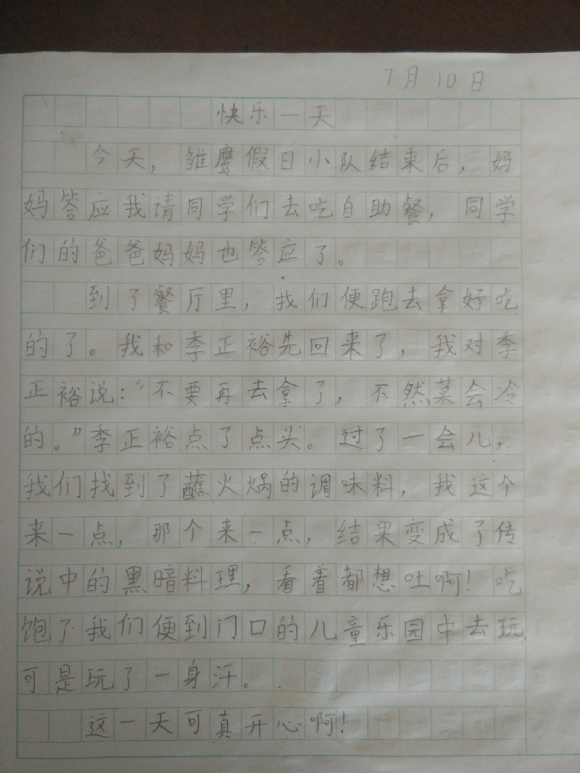 7月10日
快乐一天
今天，雏鹰假日小队结束后，妈
妈答应我请同学们去吃自助餐，同学
们的爸爸妈妈也答应了。
到了餐厅里，我们便跑去拿好吃
的了。我和季正裕先回来了，我对季
正裕说：“不要再去拿了，不然菜会冷
的。”季正裕点了点头。过了一会儿，
我们找到了蘸火焗的调味料，我这个
来一点，那个来一点，结果变成了传
说中的黑暗料理，看着都想吐啊！吃
饱了我们便到门口的儿童乐园中去玩，
可是玩了一身汗。
这一天可真开心啊！